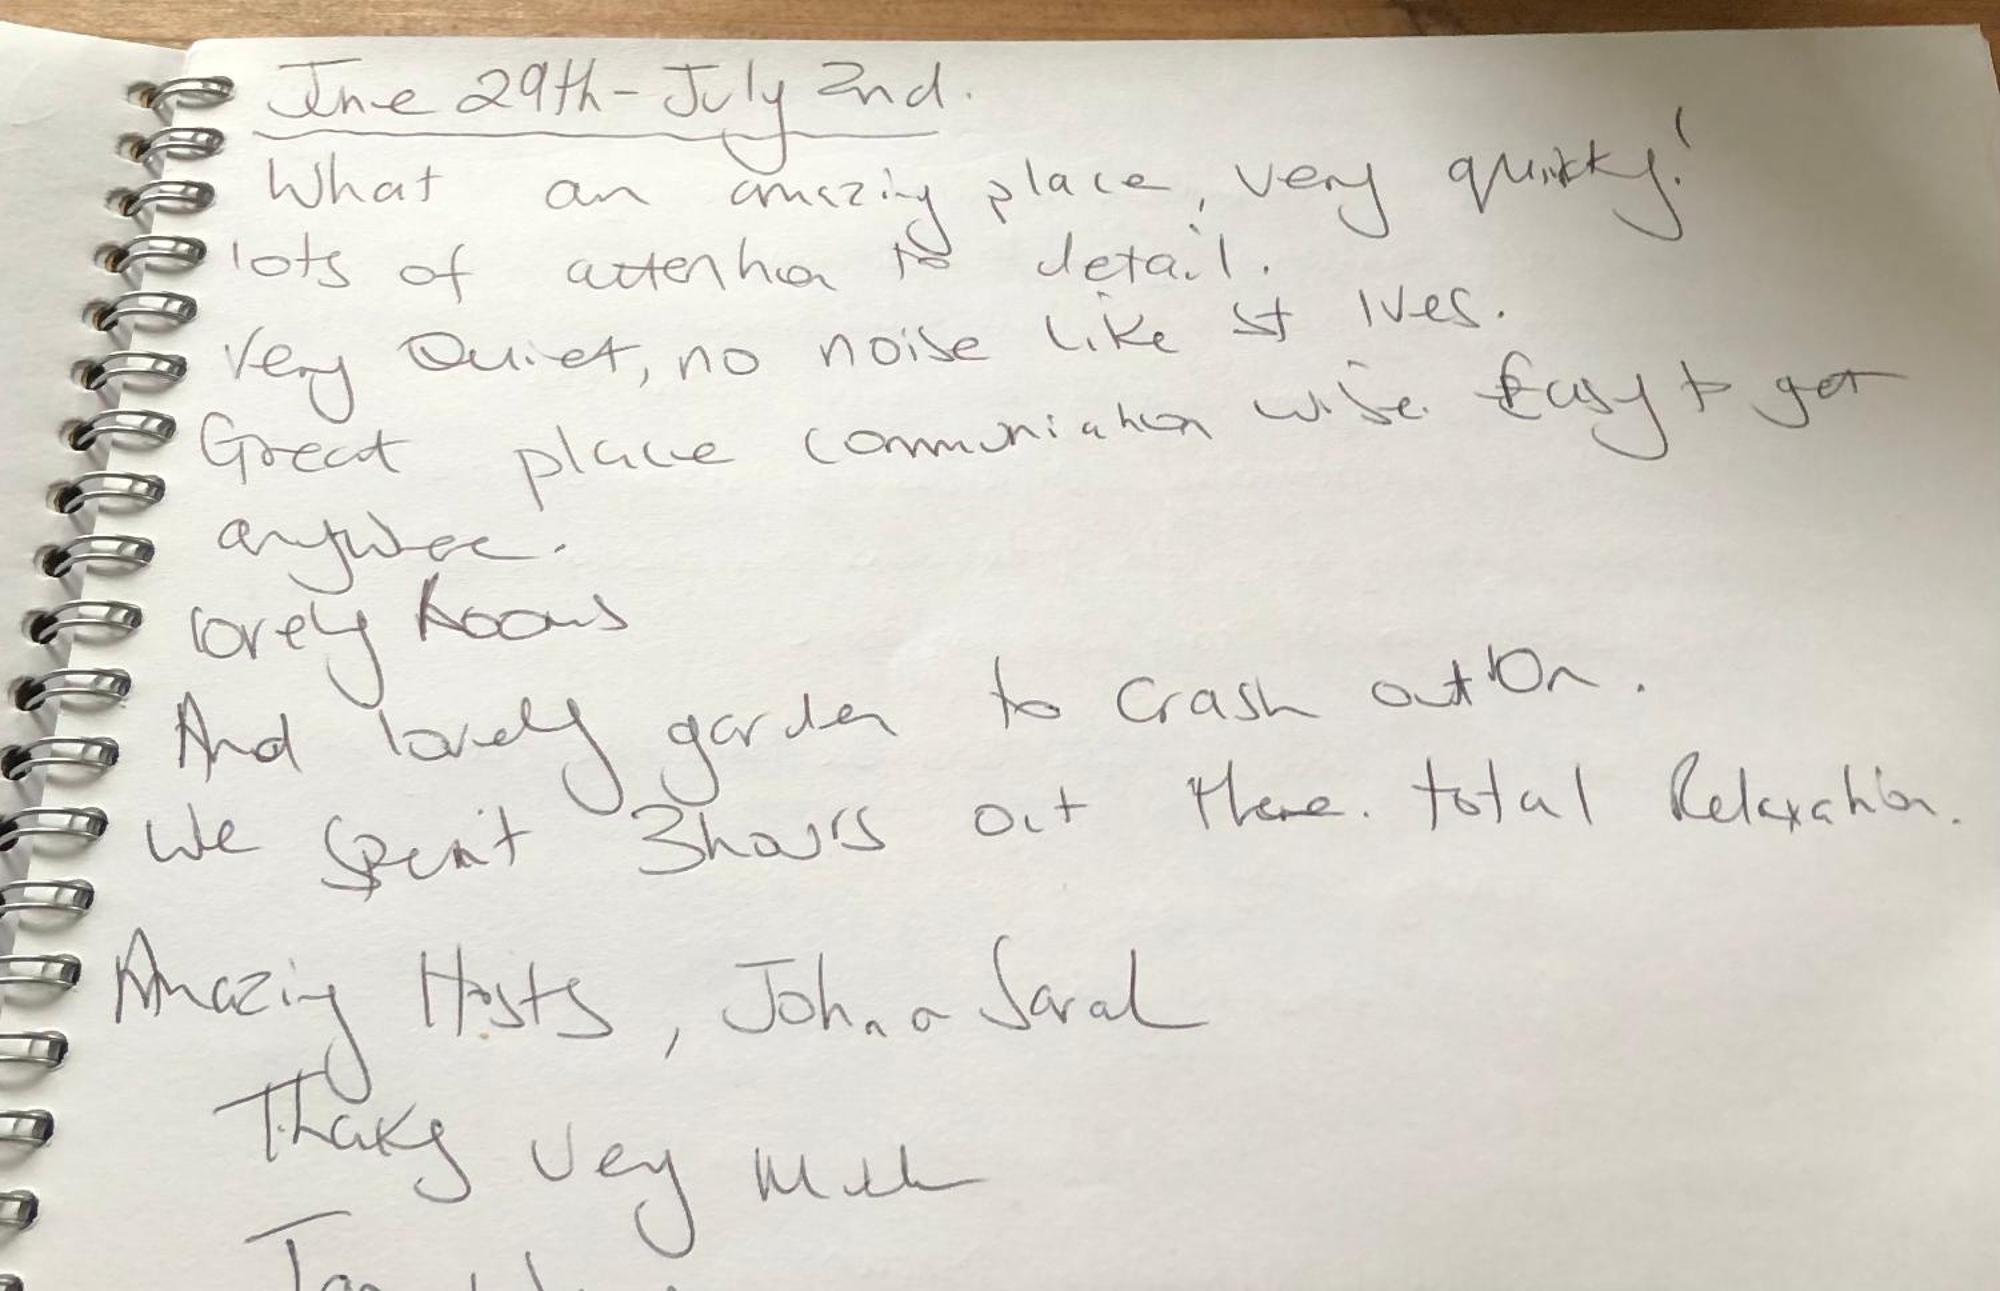 June 29th - July 2nd.
What an amazing place, very quirky!
lots of attention to detail.
Very Quiet, no noise like St Ives.
Great place communication wise. Easy to get
anywhere.
lovely Rooms
And lovely garden to crash out on.
We spent 3 hours out there. total Relaxation.
Amazing Hosts, John a Sarah
Thanks very much